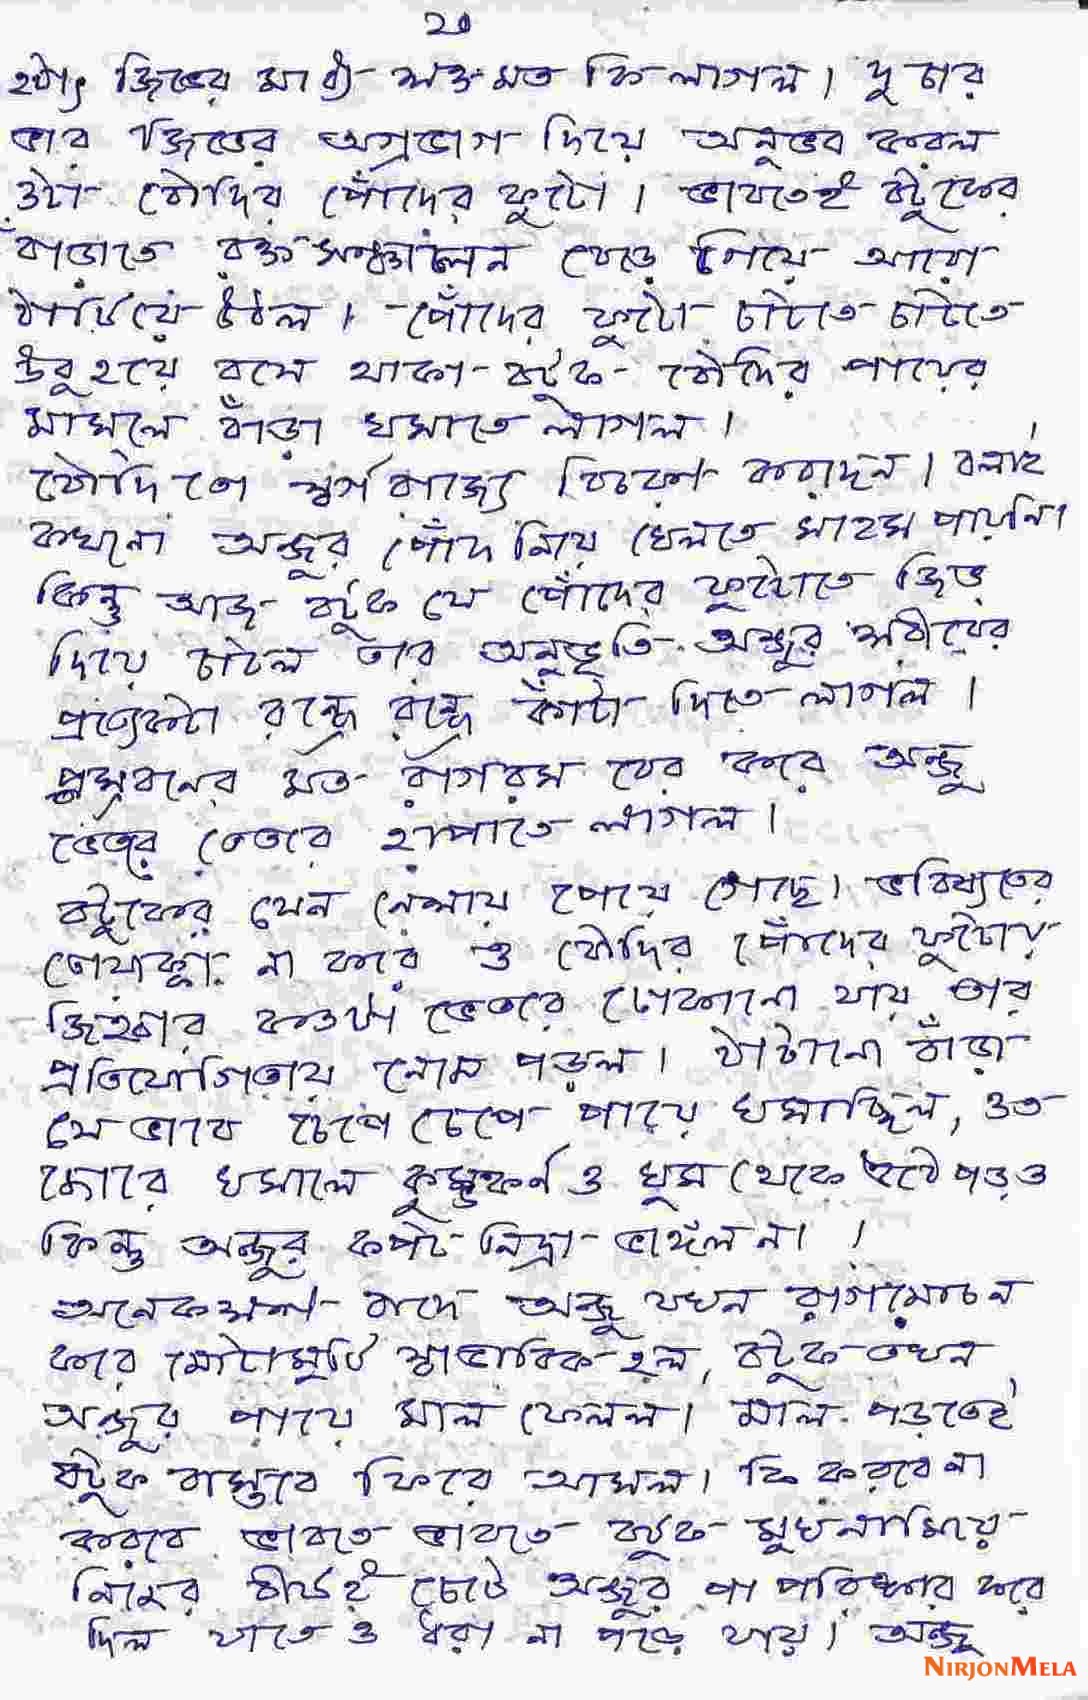 ২০
হঠাৎ জিভের মাঝে শক্ত মত কি লাগল। দু চার
বার জিভের অগ্রভাগ দিয়ে অনুভব করল
ওটা বৌদির পোঁদের ফুটো। ভাবতেই বটুকের
বাড়াতে রক্ত সঞ্চালন বেড়ে গিয়ে আরো
ঠাটিয়ে উঠল। পোঁদের ফুটো চাটতে চাটতে
উবু হয়ে বসে থাকা বটুক বৌদির পায়ের
মাসলে বাঁড়া ঘসাতে লাগল।
বৌদি তো স্বর্গ রাজ্যে বিচরণ করছেন। বলাই
কখনো অঞ্জুর পোঁদ নিয়ে খেলতে সাহস পায়নি।
কিন্তু আজ বটুক যে পোঁদের ফুটোতে জিভ
দিয়ে চাটল তার অনুভূতি অঞ্জুর শরীরের
প্রত্যেকটা রন্ধ্রে রন্ধ্রে কাঁটা দিতে লাগল।
প্রস্রবনের মত রাগরস বের করে অঞ্জু
ভেতরে ভেতরে হাপাতে লাগল।
বটুকের যেন নেশায় পেয়ে গেছে। ভবিষ্যতের
তোয়াক্কা না করে ও বৌদির পোঁদের ফুটোয়
জিহ্বার কতটা ভেতরে ঢোকানো যায় তার
প্রতিযোগিতায় নেমে পড়ল। ঠাটানো বাঁড়া
যে ভাবে চেপে চেপে পায়ে ঘসাচ্ছিল, ওত
জোরে ঘসালে কুম্ভকর্ণ ও ঘুম থেকে উঠে পড়ত
কিন্তু অঞ্জুর কপট নিদ্রা ভাঙ্গল না।
অনেকক্ষণ বাদে অঞ্জু যখন রাগমোচন
করে মোটামুটি স্বাভাবিক হল, বটুক তখন
অঞ্জুর পায়ে মাল ফেলল। মাল পড়তেই
বটুক বাস্তবে ফিরে আসল। কি করবে না
করবে ভাবতে ভাবতে বটুক মুখ নামিয়ে
নিজের বীর্যই চেটে অঞ্জুর পা পরিষ্কার করে
দিল যাতে ও ধরা না পড়ে যায়। অঞ্জু
NIRJONMELA